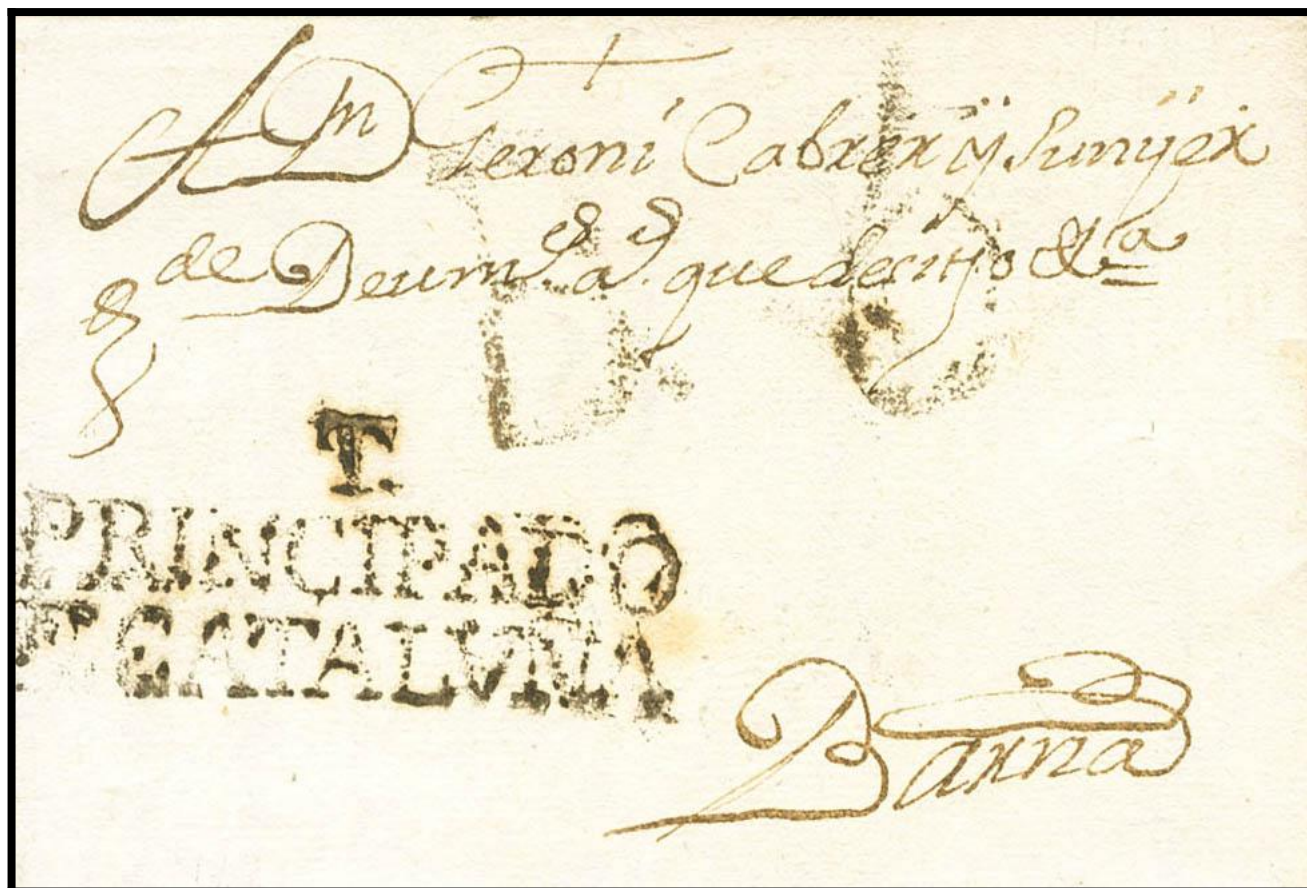 A Dn Geroni Cabrer y Sunyer
de Deum que desitjo &a
T.
PRINCIPADO
CATALUÑA
Barna